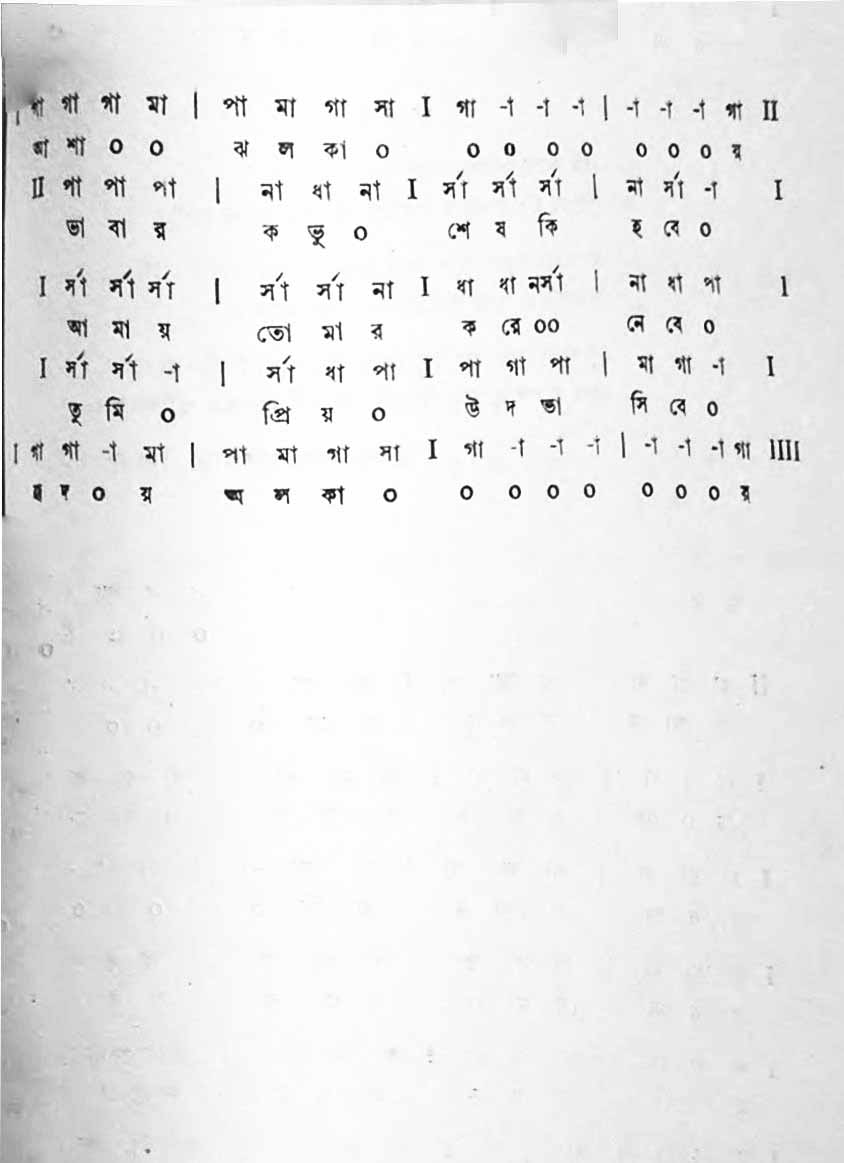 গা গা গা মা | পা মা গা সা I গা -া -া -া | -া -া -া গা II
আ শা ০ ০ ঝ ল কা ০ ০ ০ ০ ০ ০ ০ ০ র
II পা পা পা | না ধা না I র্সা র্সা র্সা | না র্সা -া I
ভা বা র ক ভু ০ শে ষ কি হ বে ০
I র্সা র্সা র্সা | র্সা র্সা না I ধা ধা নর্সা | না ধা পা I
আ মা য় তো মা র ক রে ০০ নে বে ০
I র্সা র্সা -া | র্সা ধা পা I পা গা পা | মা গা -া I
তু মি ০ প্রি য় ০ উ দ ভা সি বে ০
I গা গা -া মা | পা মা গা সা I গা -া -া -া | -া -া -া গা IIII
দ ০ য় অ ল কা ০ ০ ০ ০ ০ ০ ০ ০ র